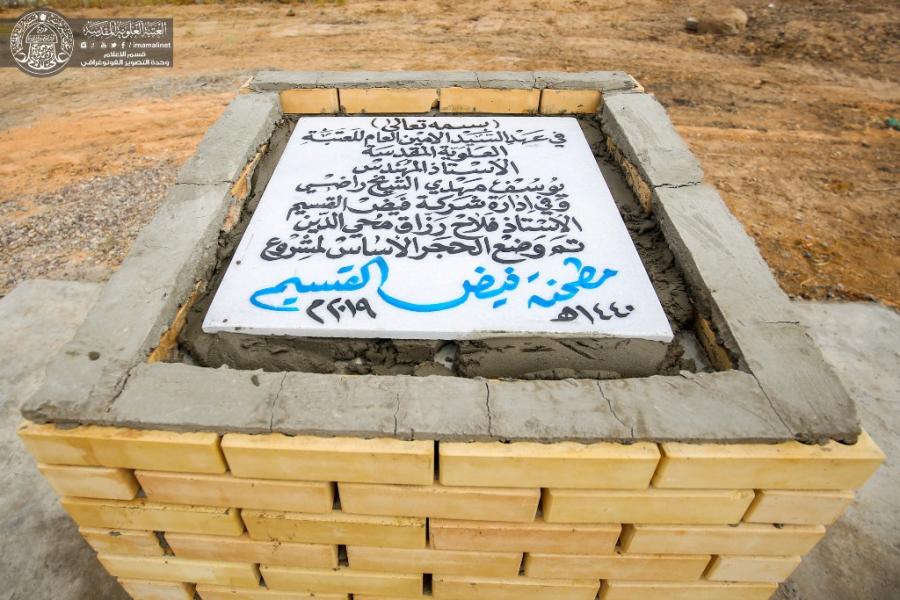 العتبة العلوية المقدسة
imamalinet
قسم الاعلام
وحدة التصوير الفوتوغرافي
(بسمه تعالى)
في عهد السيد الامين العام للعتبة
العلوية المقدسة
الاستاذ المهندس
يوسف مهدي الشيخ راضي
وفي ادارة شركة فيض القسيم
الاستاذ فلاح رزاق محي الدين
تم وضع الحجر الأساس لمشروع
مطحنة فيض القسيم
١٤٤٠هـ ٢٠١٩م